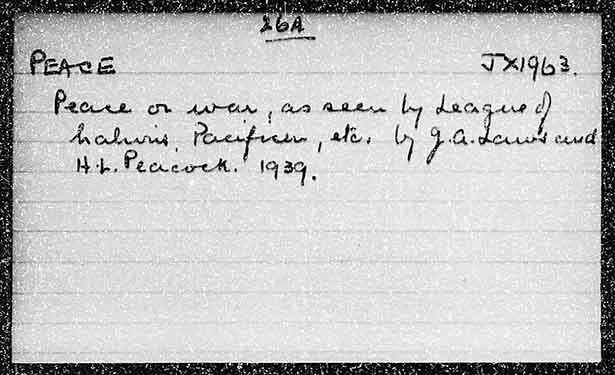 26A
PEACE JX1963.
Peace or war, as seen by League of
Nations, Pacificism, etc. by J.A. Lauwerys and
H.L. Peacock. 1939.